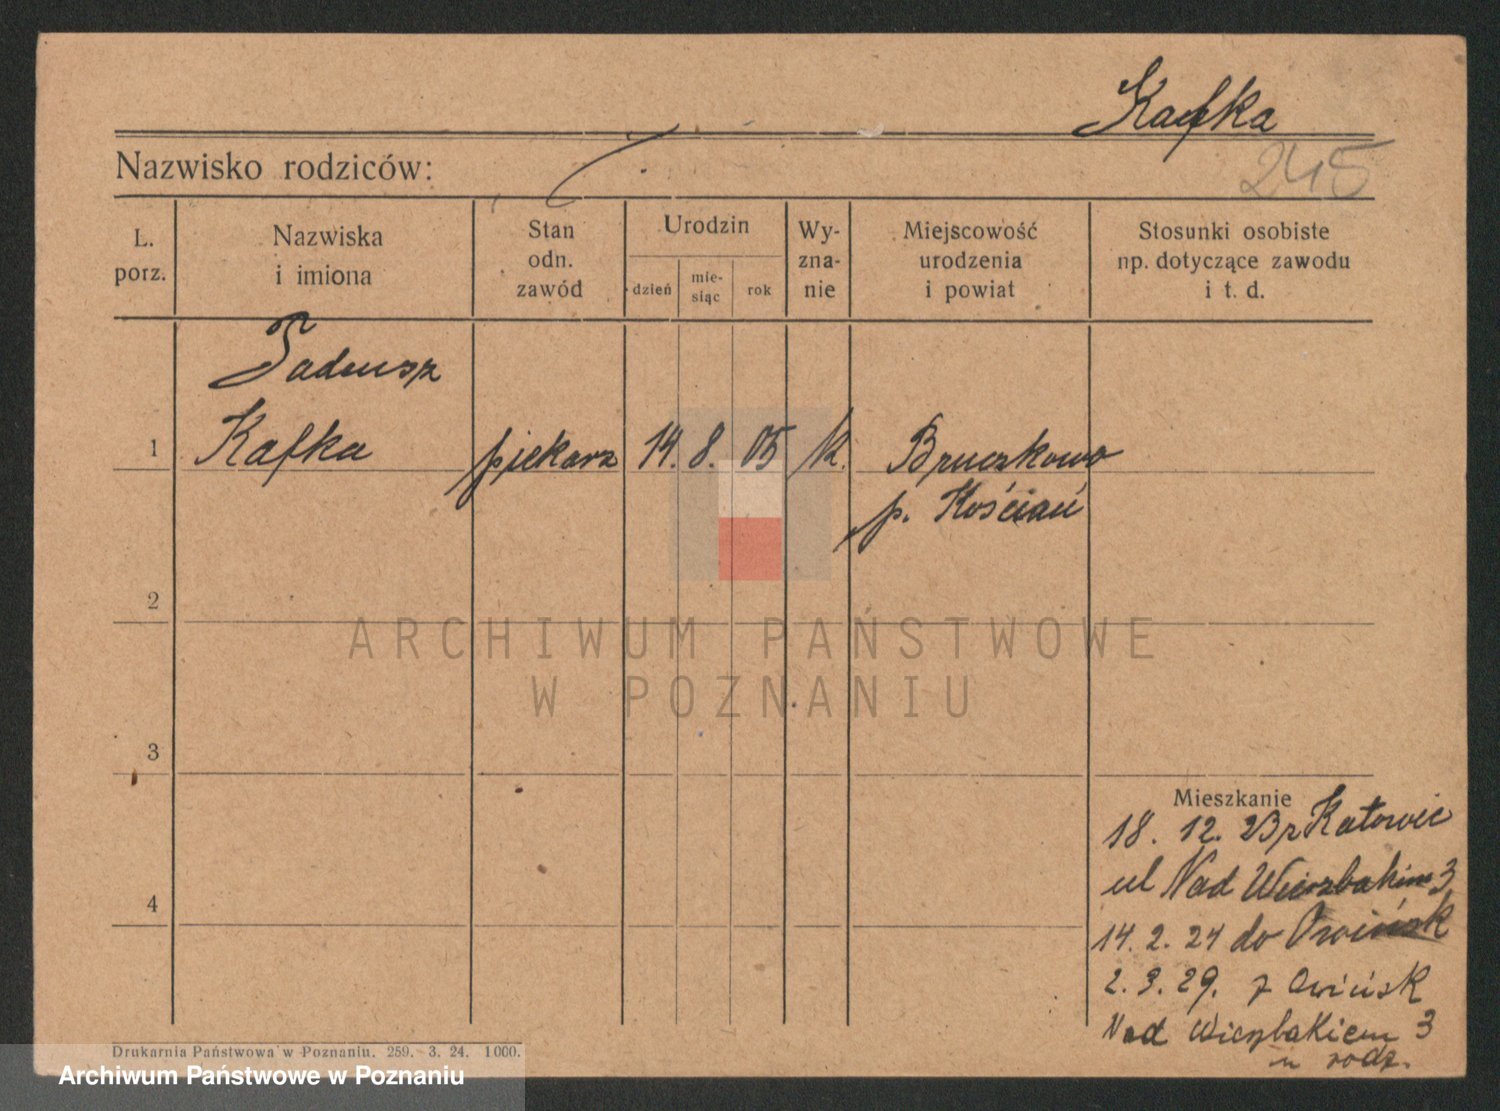 Kafka
Nazwisko rodziców:
245
L. porz.
Nazwiska i imiona
Stan odn. zawód
Urodzin
dzień
mie-siąc
rok
Wy-zna-nie
Miejscowość urodzenia i powiat
Stosunki osobiste np. dotyczące zawodu i t. d.
Tadeusz
1 Kafka piekarz 14. 8. 05 k. Bruczkowo
p. Kościań
2
ARCHIWUM PAŃSTWOWE
W POZNANIU
3
Mieszkanie
18. 12. 23 z Katowic
ul Nad Wierzbakiem 3
4
14. 2. 24 do Owińsk
2. 3. 29. z Owińsk
Nad Wierzbakiem 3
u rodz.
Drukarnia Państwowa w Poznaniu. 259. 3. 24. 1000.
Archiwum Państwowe w Poznaniu